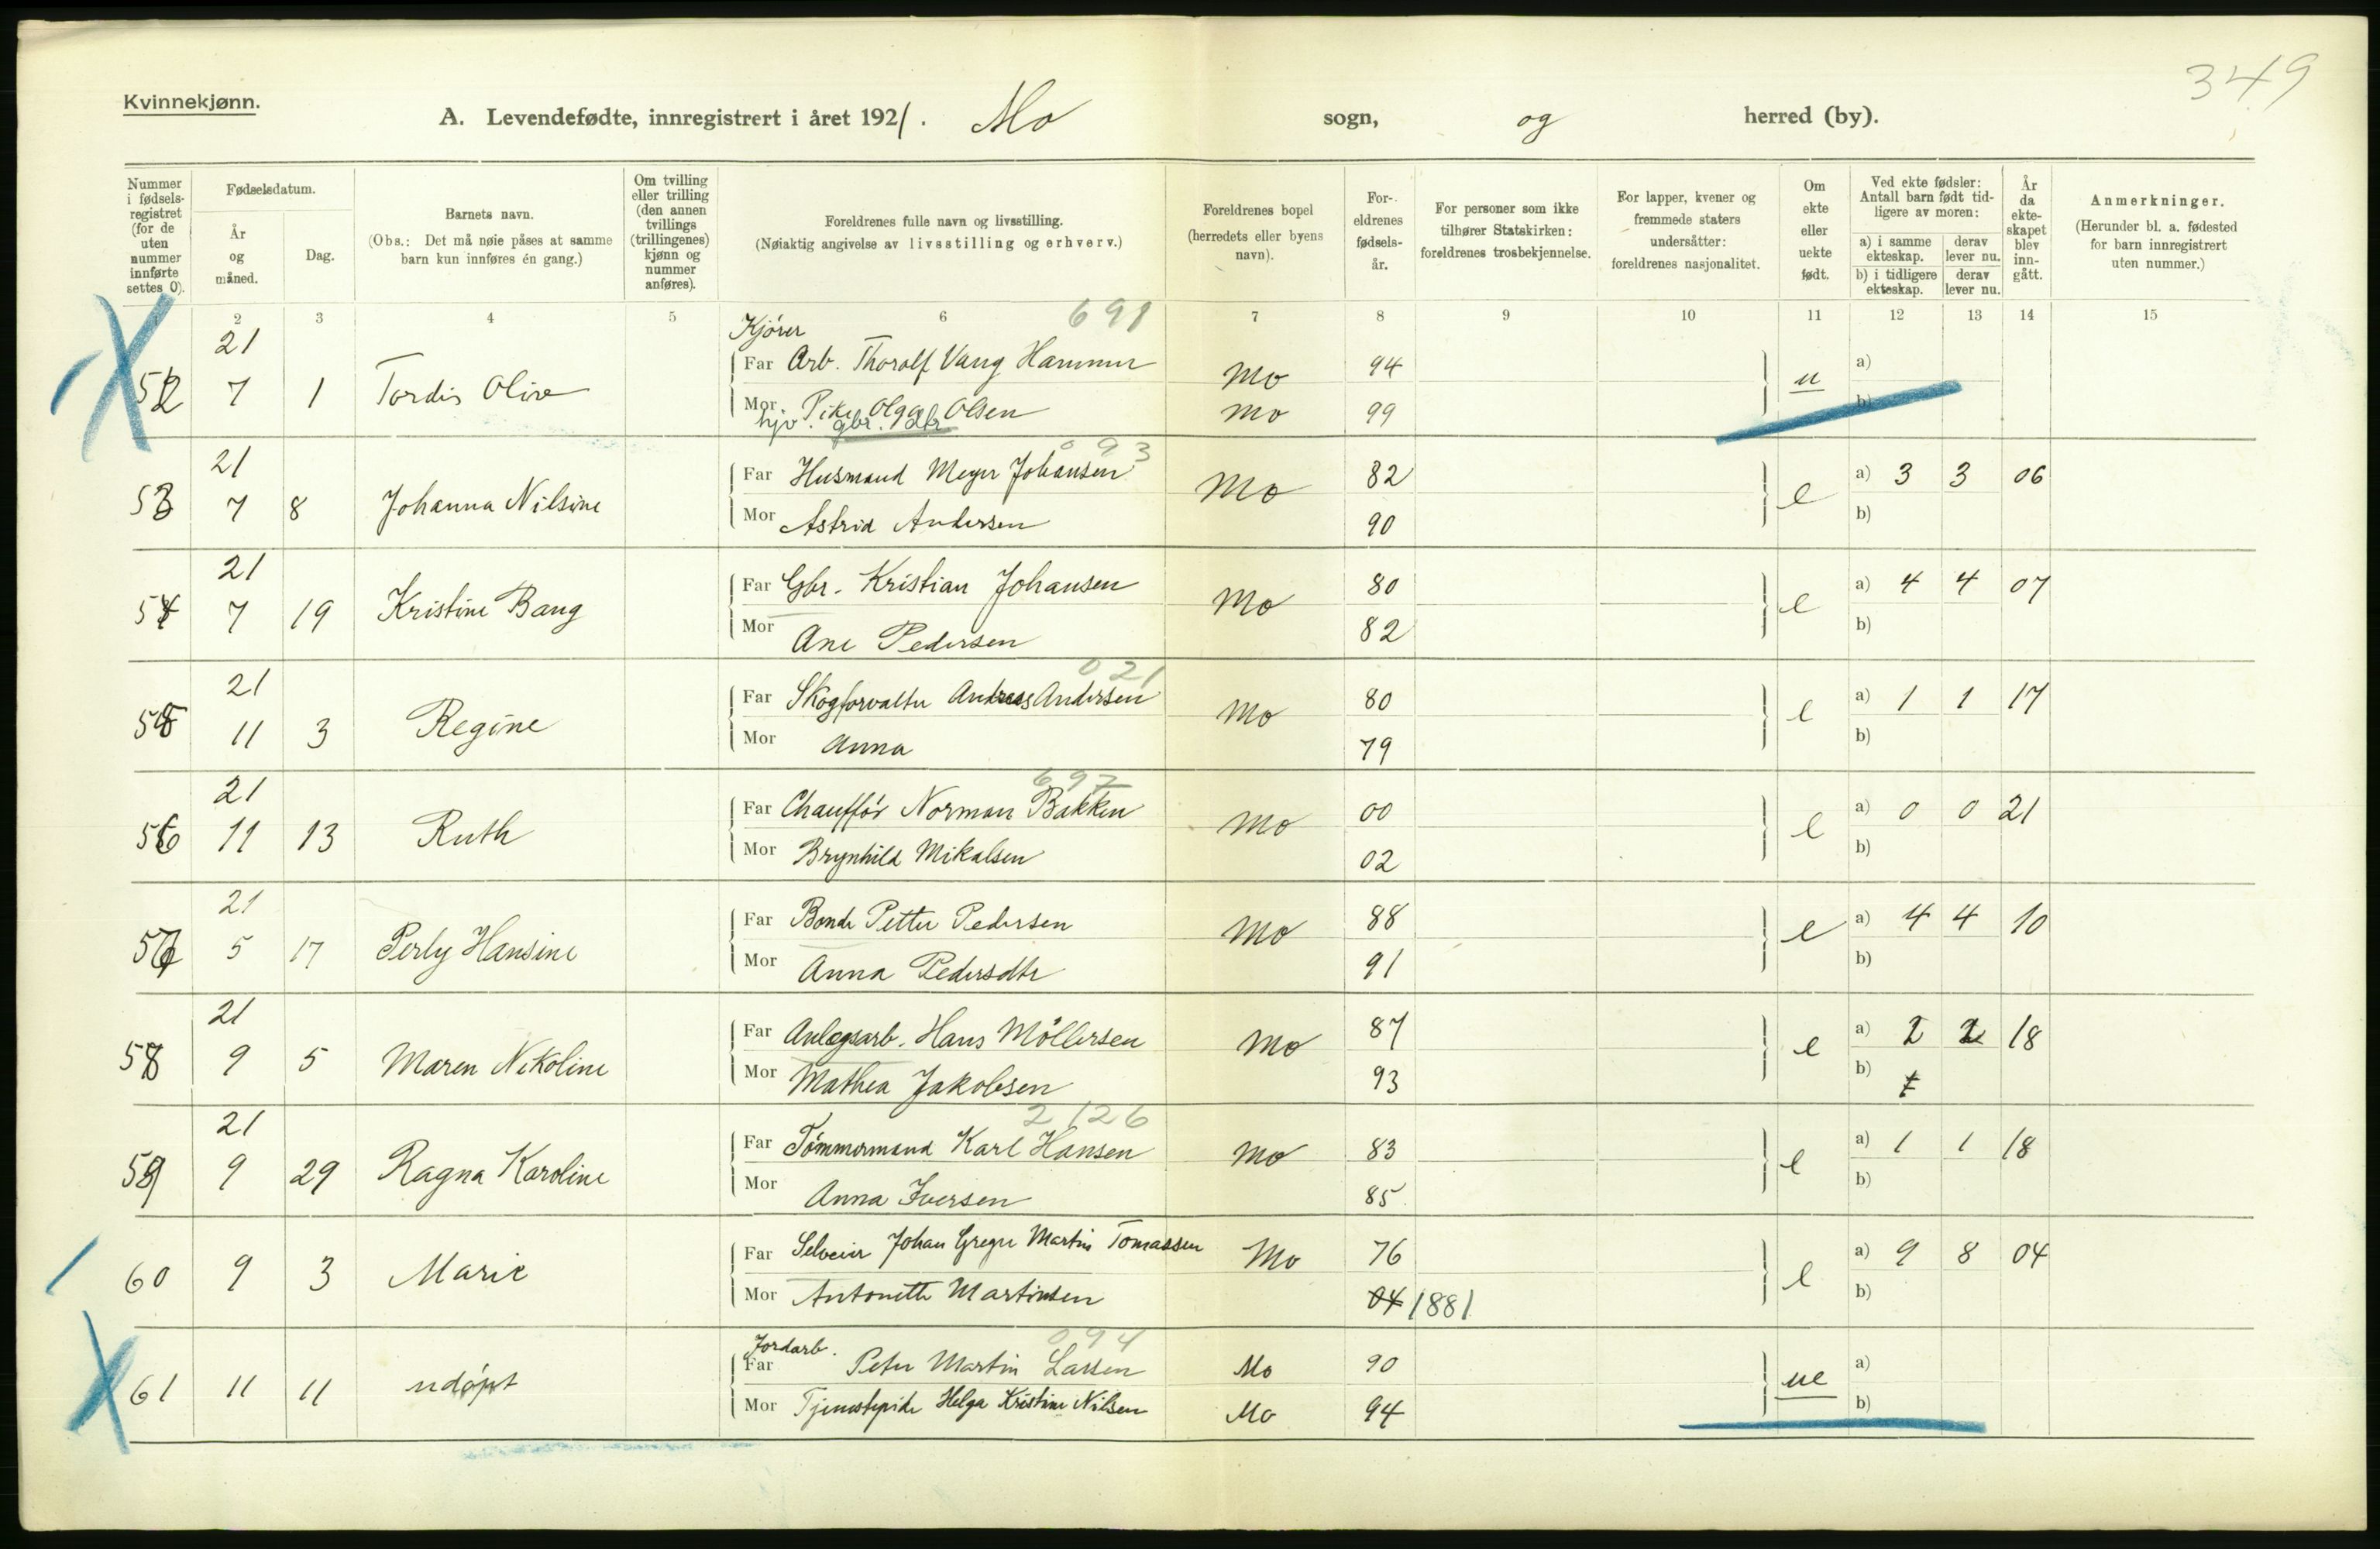 349
Kvinnekjønn.
A. Levendefødte, innregistrert i året 1921. Mo sogn, og herred (by).
Nummer i fødsels-registret (for de uten nummer innførte settes 0).
Fødselsdatum.
År og måned.
Dag.
Barnets navn.
(Obs.: Det må nøie påses at samme barn kun innføres én gang.)
Om tvilling eller trilling (den annen tvillings (trillingenes) kjønn og nummer anføres).
Foreldrenes fulle navn og livsstilling.
(Nøiaktig angivelse av livsstilling og erhverv.)
Foreldrenes bopel (herredets eller byens navn).
For-eldrenes fødsels-år.
For personer som ikke tilhører Statskirken: foreldrenes trosbekjennelse.
For lapper, kvener og fremmede staters undersåtter: foreldrenes nasjonalitet.
Om ekte eller uekte født.
Ved ekte fødsler: Antall barn født tid-ligere av moren:
a) i samme ekteskap. derav lever nu.
b) i tidligere ekteskap. derav lever nu.
År da ekte-skapet blev inn-gått.
Anmerkninger.
(Herunder bl. a. fødested for barn innregistrert uten nummer.)
1 2 3 4 5 6 7 8 9 10 11 12 13 14 15
691
Kjører
21
52 7 1 Tordis Olive Far Arb. Thorolf Vang Hammer Mo 94 u a)
Mor Pike Olga Olsen Mo 99 b)
hjv. gbr. dtr
093
21
53 7 8 Johanna Nilsine Far Husmand Meyer Johansen Mo 82 e a) 3 3 06
Mor Astrid Andersen 90 b)
21
54 7 19 Kristine Bang Far Gbr. Kristian Johansen Mo 80 e a) 4 4 07
Mor Ane Pedersen 82 b)
021
21
55 11 3 Regine Far Skogforvalter Andreas Andersen Mo 80 e a) 1 1 17
Mor Anna 79 b)
697
21
56 11 13 Ruth Far Chauffør Norman Bakken Mo 00 e a) 0 0 21
Mor Brynhild Mikalsen 02 b)
21
57 5 17 Perly Hansine Far Bonde Petter Pedersen Mo 88 e a) 4 4 10
Mor Anna Pedersdtr 91 b)
21
58 9 5 Maren Nikoline Far Anlegsarb. Hans Möllersen Mo 87 e a) 2 2 18
Mor Mathea Jakobsen 93 b)
2126
21
59 9 29 Ragna Karoline Far Tømmermand Karl Hansen Mo 83 e a) 1 1 18
Mor Anna Iversen 85 b)
60 9 3 Marie Far Selveier Johan Greger Martin Tomassen Mo 76 e a) 9 8 04
Mor Antonette Martinsen 04 1881 b)
094
Jordarb.
61 11 11 udøpt Far Peter Martin Larsen Mo 90 ue a)
Mor Tjenestepike Helga Kristine Nilsen Mo 94 b)